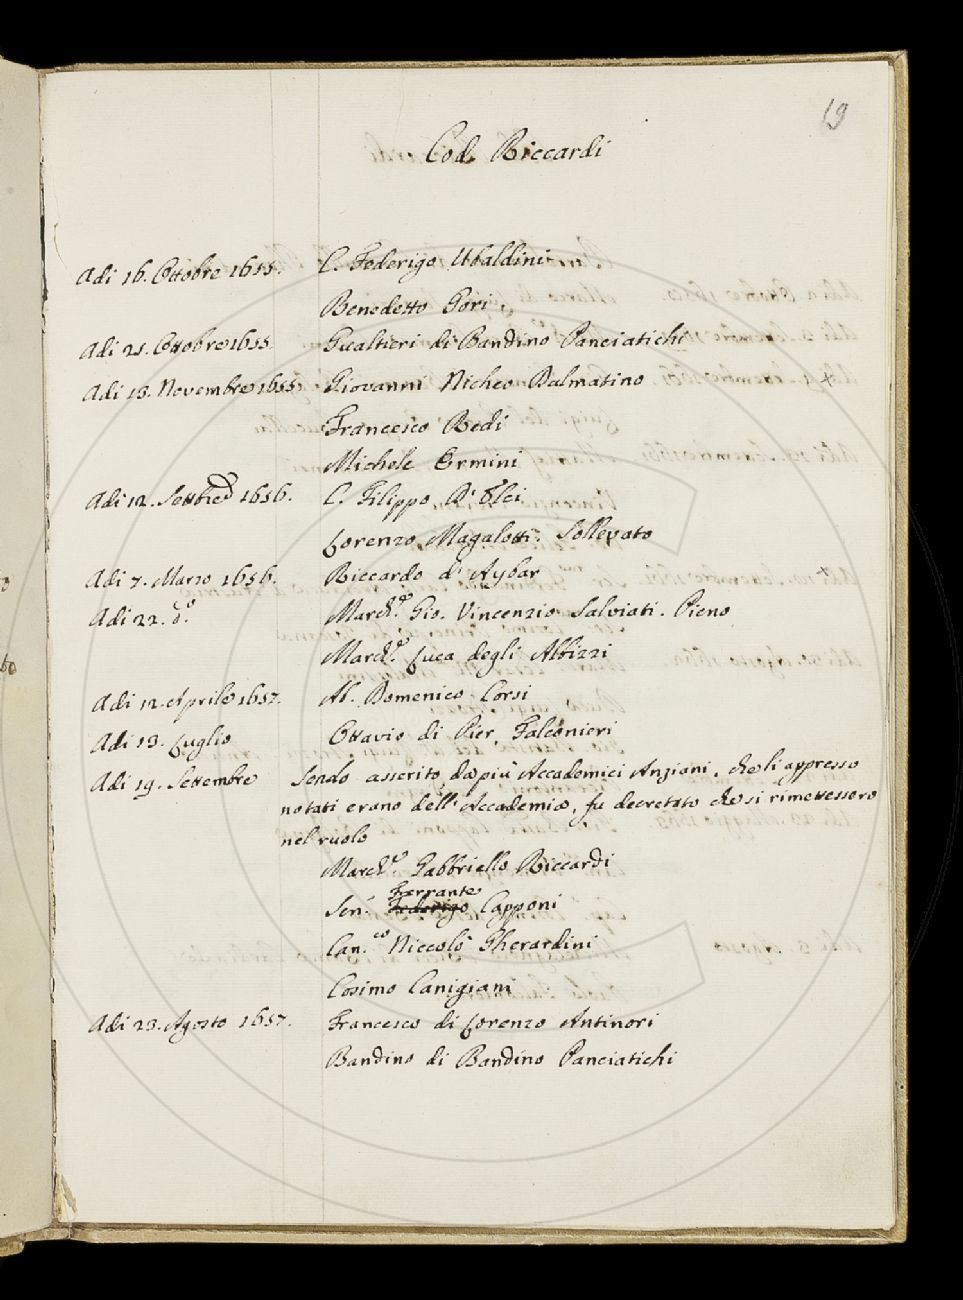 19
Cod. Riccardi
Adi 16. Ottobre 1655. C. Federigo Ubaldini
Benedetto Gori
Adi 21. Ottobre 1655. Gualtieri di Bandino Panciatichi
Adi 13. Novembre 1655 Giovanni Nicheo Dalmatino
Francesco Redi
Michele Ermini
Adi 12. Settbre 1656. C. Filippo D' Elci
Lorenzo Magalotti. Sollevato
Adi 7. Marzo 1656. Riccardo d' Aybar
Adi 22. do March.e Gio. Vincenzio Salviati. Pieno
March.e Luca degli Albizzi
Adi 12. Aprile 1657. Al. Domenico Corsi
Adi 13. Luglio Ottavio di Pier Falconieri
Adi 19. Settembre Sendo asserito da più Accademici Anziani, che li appresso
notati erano dell' Accademia, fu decretato che si rimettessero
nel ruolo
March.e Gabbriello Riccardi
Ferrante
Sen. Federigo Capponi
Can.co Niccolò Gherardini
Cosimo Canigiani
Adi 23. Agosto 1657. Francesco di Lorenzo Antinori
Bandino di Bandino Panciatichi